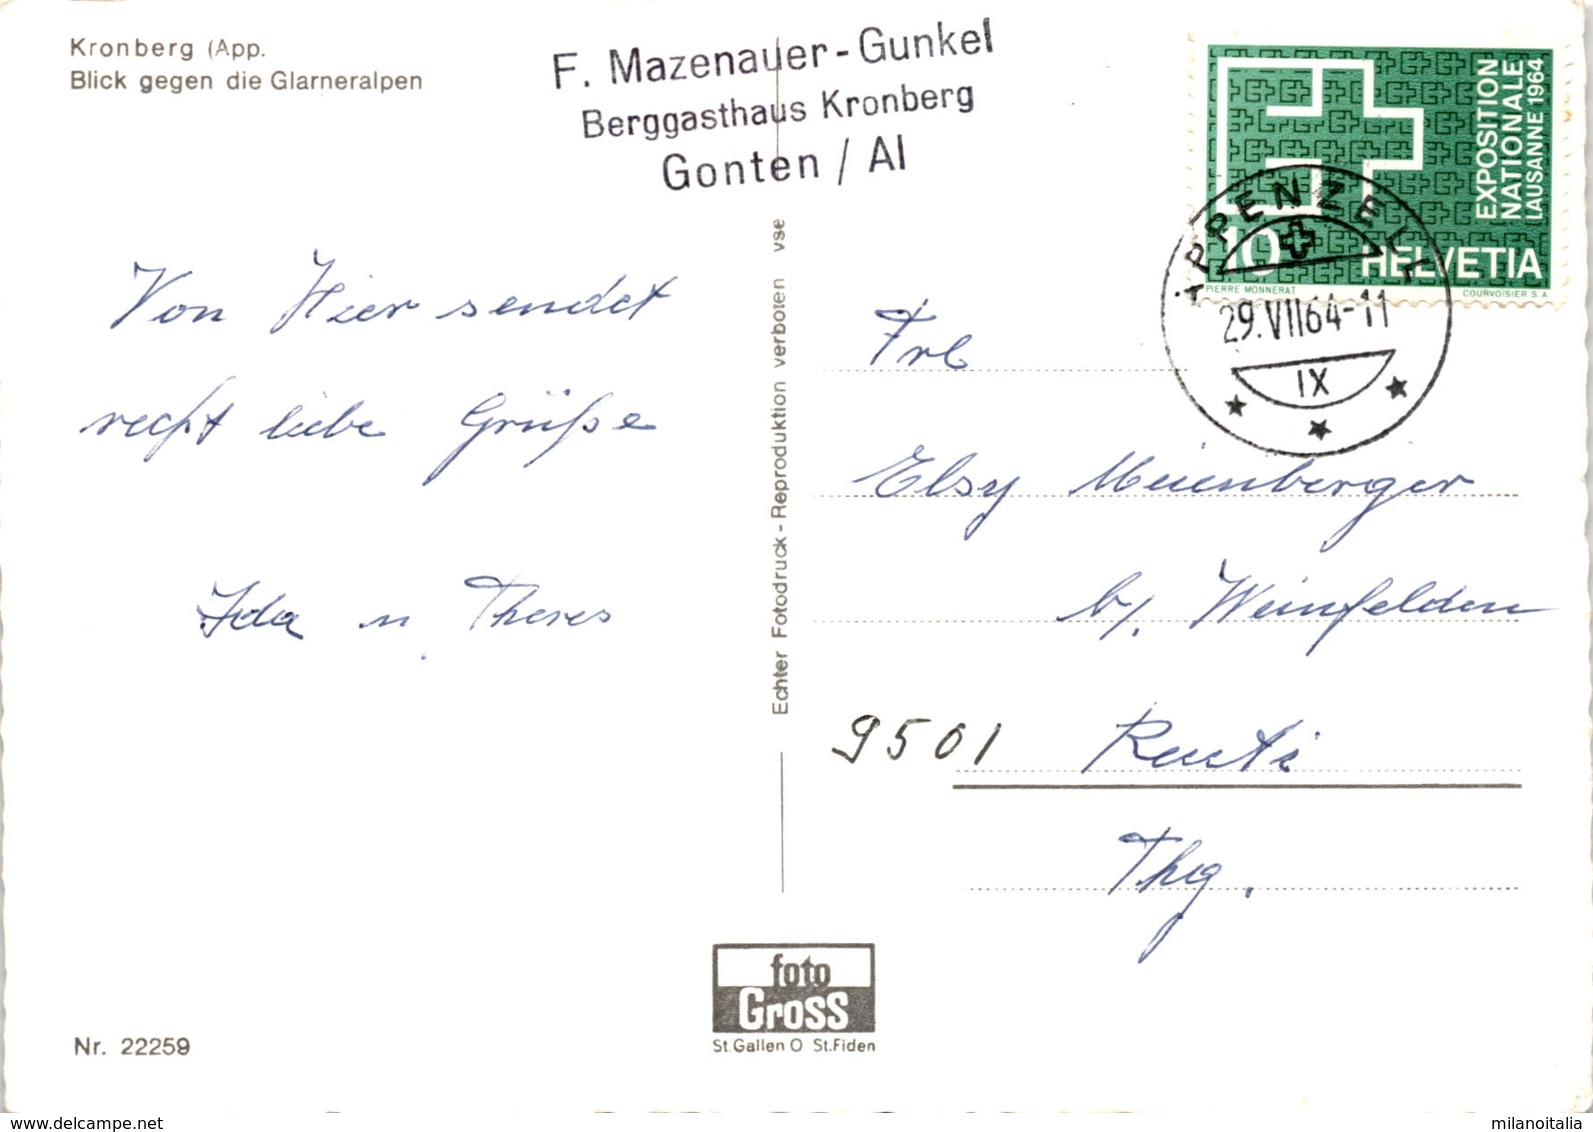 Kronberg (App.
Blick gegen die Glarneralpen
F. Mazenauer-Gunkel
Berggasthaus Kronberg
Gonten / AI
EXPOSITION
NATIONALE
LAUSANNE 1964
10
HELVETIA
PIERRE MONNERAT
COURVOISIER S.A.
APPENZELL
29.VII64-11
IX
Von Hier sendet
recht liebe Grüße
Ida u Theres
Echter Fotodruck - Reproduktion verboten vse
Frl
Elsy Meienberger
b/. Weinfelden
9501 Reuti
Thg.
foto
Gross
St.Gallen O St.Fiden
Nr. 22259
www.delcampe.net
milanoitalia